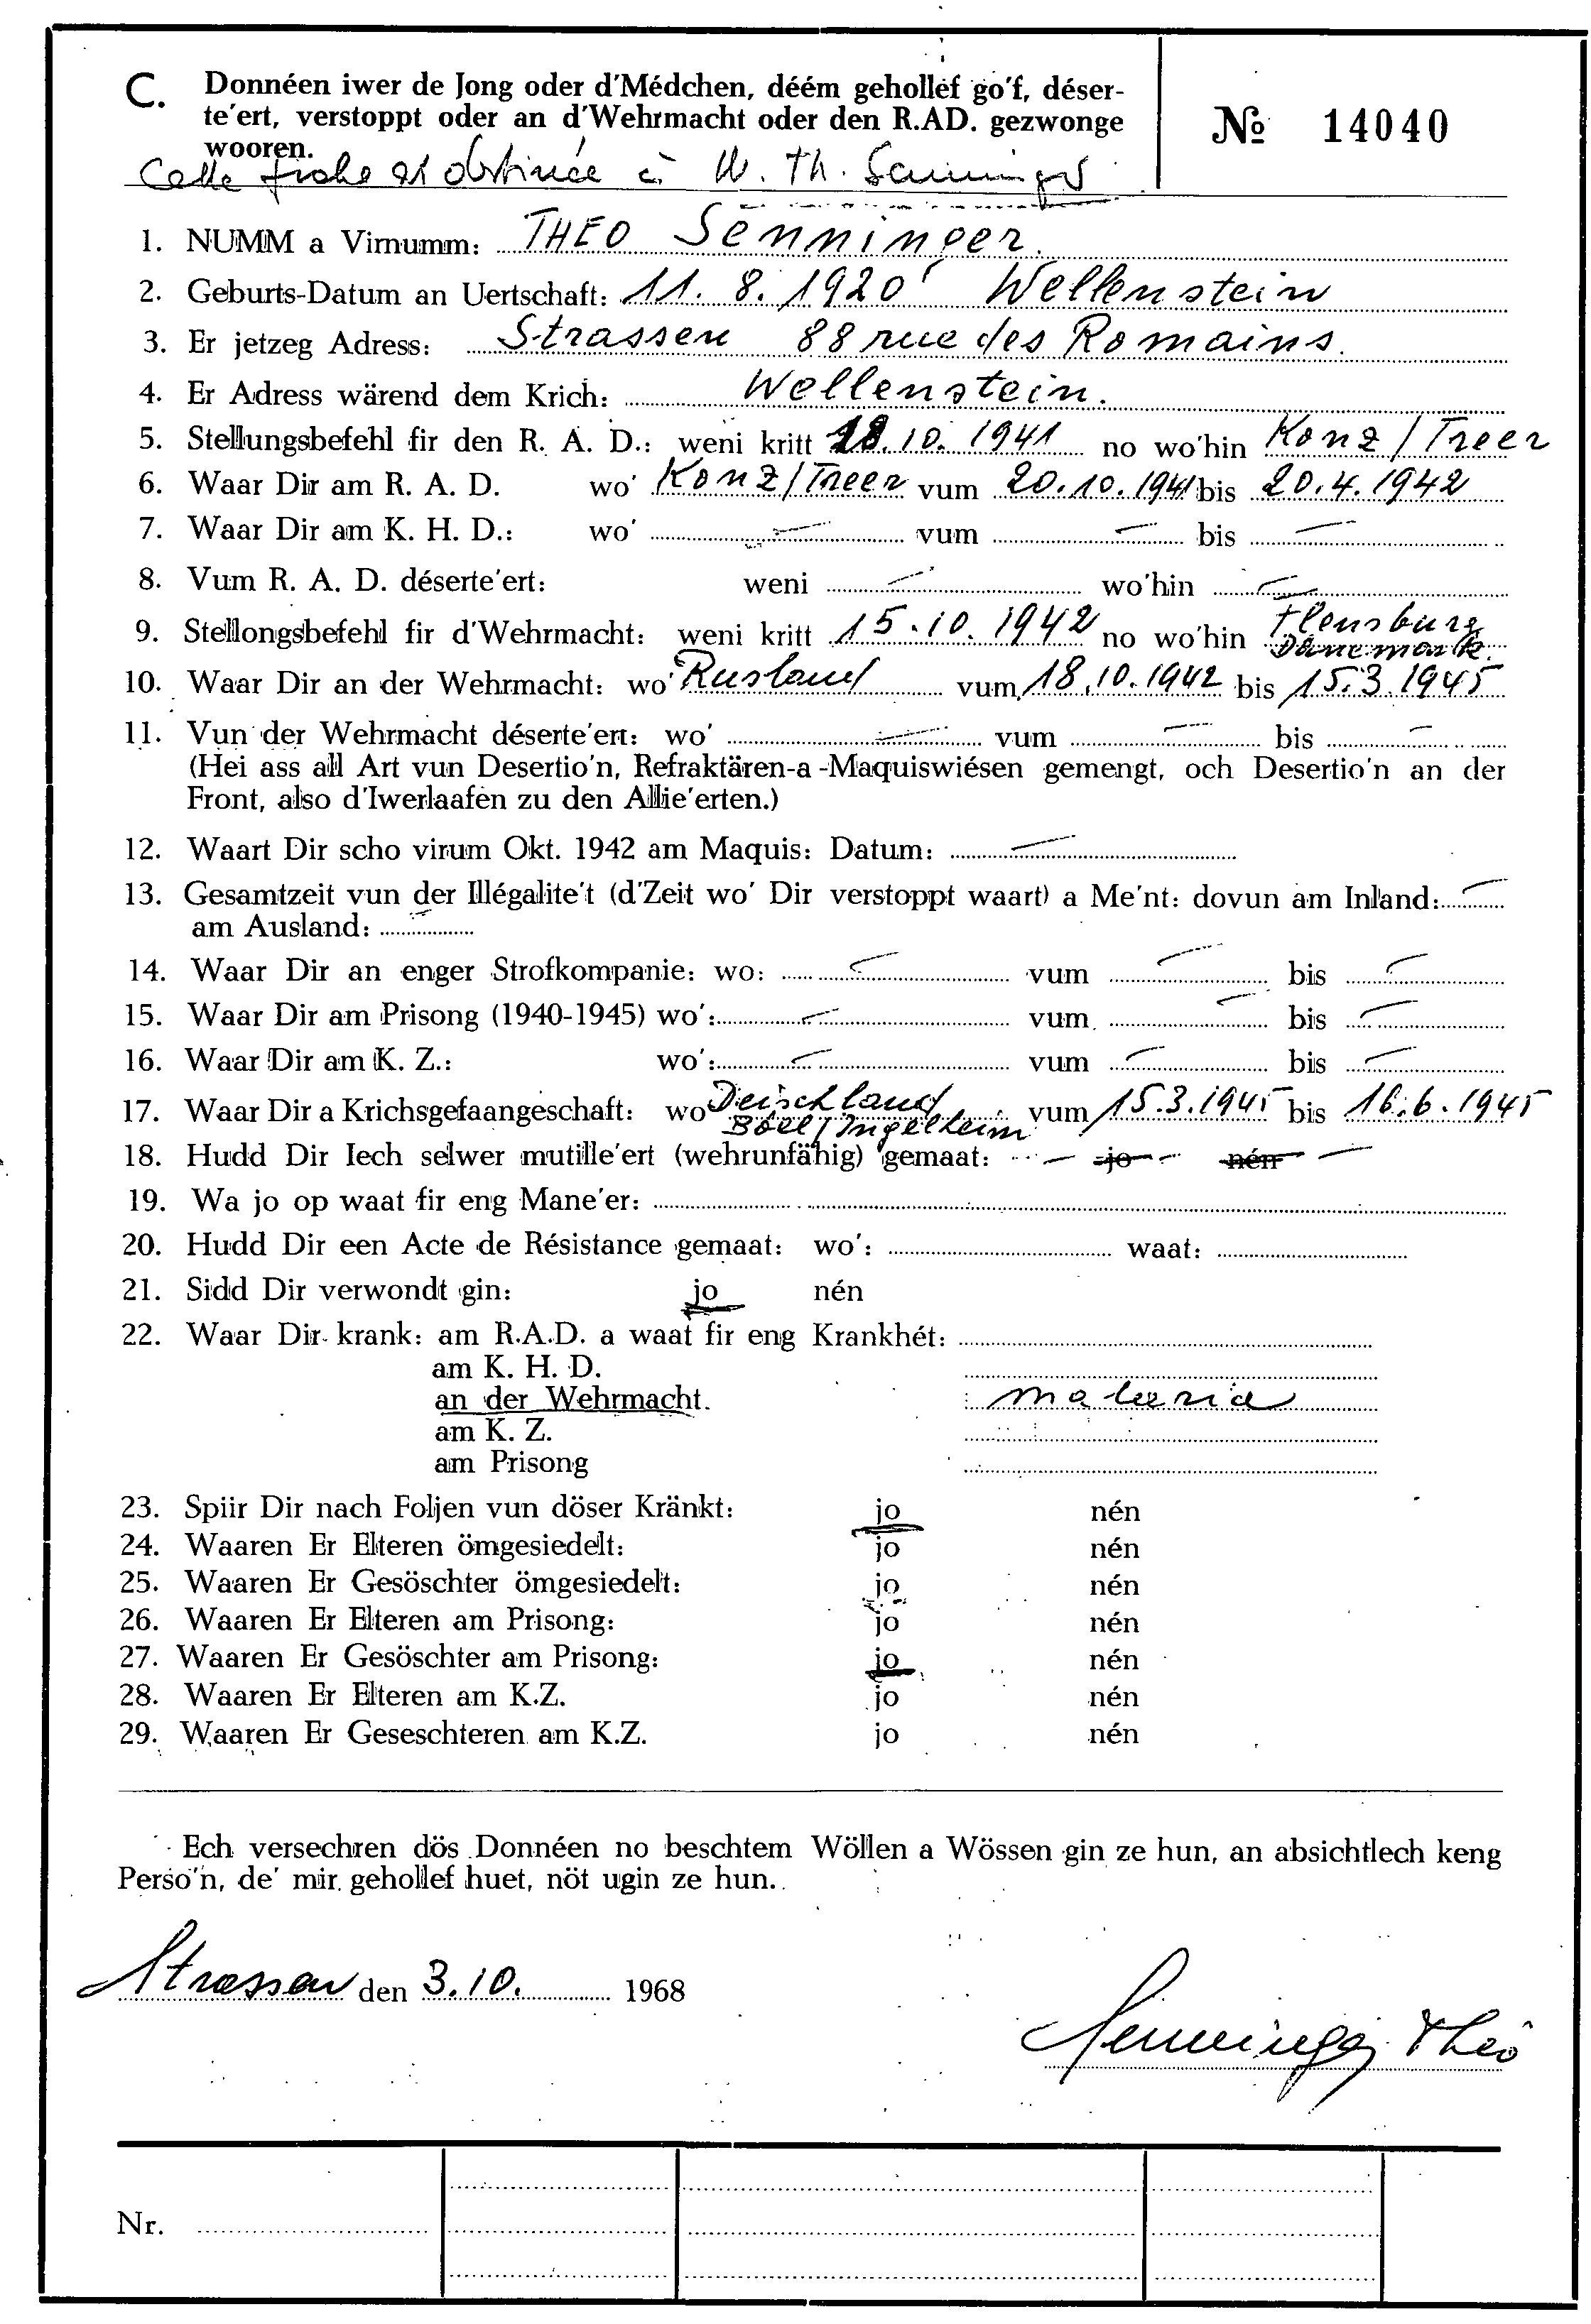 C. Donnéen iwer de Jong oder d'Médchen, déém gehollef go'f, déser-
te'ert, verstoppt oder an d'Wehrmacht oder den R.AD. gezwonge
wooren.
№ 14040
Cette fiche est destinée à M. Th. Senninger
1. NUMM a Virnumm: THEO Senninger.
2. Geburts-Datum an Uertschaft: 11. 8. 1920 Wellenstein
3. Er jetzeg Adress: Strassen 88 rue des Romains.
4. Er Adress wärend dem Krich: Wellenstein.
5. Stellungsbefehl fir den R. A. D.: weni kritt 18.10.1941 no wo'hin Konz / Treer
6. Waar Dir am R. A. D. wo' Konz / Treer vum 20.10.1941 bis 20.4.1942
7. Waar Dir am K. H. D.: wo' — vum — bis —
8. Vum R. A. D. déserte'ert: weni — wo'hin —
9. Stellongsbefehl fir d'Wehrmacht: weni kritt 15.10.1942 no wo'hin Flensburg
Dänemark
10. Waar Dir an der Wehrmacht: wo' Rusland vum 18.10.1942 bis 15.3.1945
11. Vun der Wehrmacht déserte'ert: wo' — vum — bis —
(Hei ass all Art vun Desertio'n, Refraktären-a-Maquiswiésen gemengt, och Desertio'n an der
Front, also d'Iwerlaafen zu den Allie'erten.)
12. Waart Dir scho virum Okt. 1942 am Maquis: Datum: —
13. Gesamtzeit vun der Illégalite't (d'Zeit wo' Dir verstoppt waart) a Me'nt: dovun am Inland: —
am Ausland: —
14. Waar Dir an enger Strofkompanie: wo: — vum — bis —
15. Waar Dir am Prisong (1940-1945) wo': — vum — bis —
16. Waar Dir am K. Z.: wo': — vum — bis —
17. Waar Dir a Krichsgefaangeschaft: wo Deischland vum 15.3.1945 bis 16.6.1945
Böel / Ingelheim
18. Hudd Dir Iech selwer mutille'ert (wehrunfähig) gemaat: — jo — nén —
19. Wa jo op waat fir eng Mane'er:
20. Hudd Dir een Acte de Résistance gemaat: wo': waat:
21. Sidd Dir verwondt gin: jo nén
22. Waar Dir krank: am R.A.D. a waat fir eng Krankhét:
am K. H. D.
an der Wehrmacht. malaria
am K. Z.
am Prisong
23. Spiir Dir nach Foljen vun döser Kränkt: jo nén
24. Waaren Er Elteren ömgesiedelt: jo nén
25. Waaren Er Gesöschter ömgesiedelt: jo nén
26. Waaren Er Elteren am Prisong: jo nén
27. Waaren Er Gesöschter am Prisong: jo nén
28. Waaren Er Elteren am K.Z. jo nén
29. Waaren Er Geseschteren am K.Z. jo nén
Ech versechren dös Donnéen no beschtem Wöllen a Wössen gin ze hun, an absichtlech keng
Perso'n, de' mir gehollef huet, nöt ugin ze hun.
Strassen den 3.10. 1968
Senninger Théo
Nr.